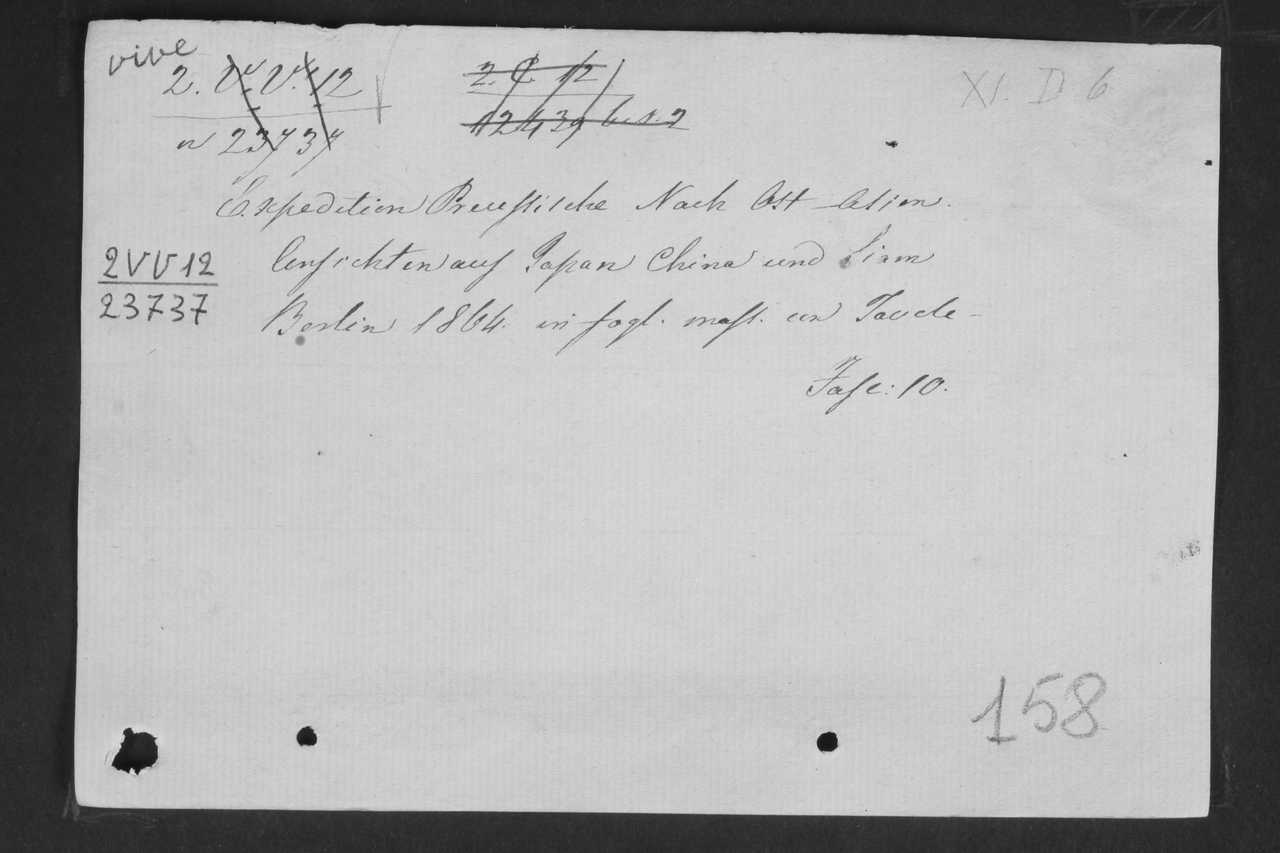 vive
2. V. V. 12
n 23737
2. C. 12
12439
XI. D 6
Expedition Preussische Nach Ost Asien.
2VV12
23737
Ansichten aus Japan China und Siam
Berlin 1864. in fogl. mass. con Tavole
Fasc: 10.
158